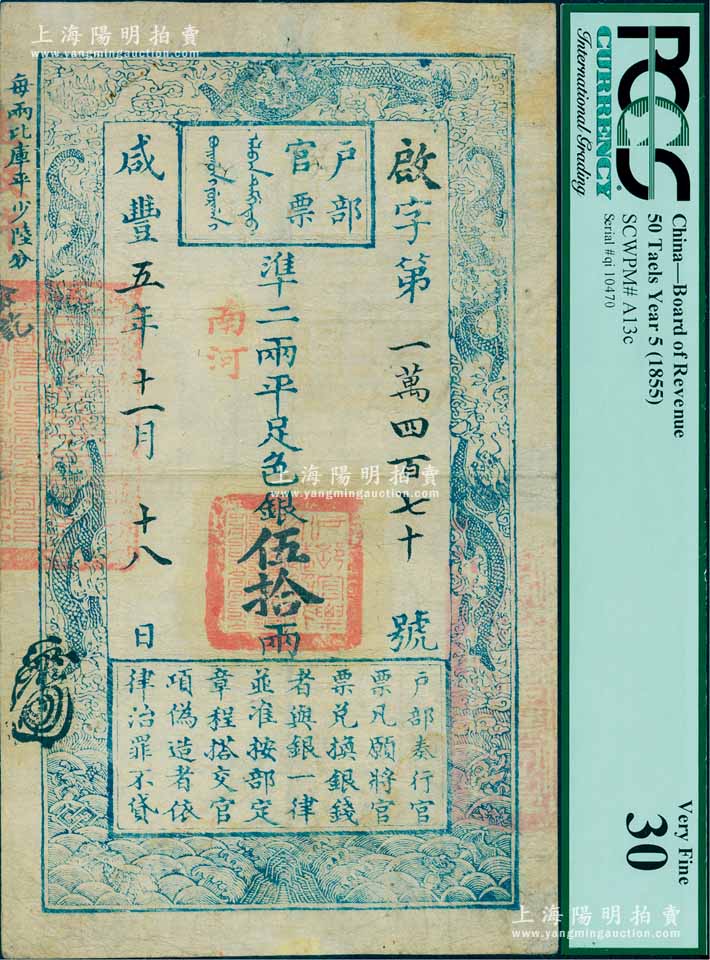 上海陽明拍賣
www.yangmingauction.com
每兩比庫平少陸分
戶部
官票
啟字第一萬四百七十號
準二兩平足色銀伍拾兩
南河
咸豐五年十一月十八日
戶部奏行官
票凡願將官
票兌換銀錢
者與銀一律
並准按部定
章程搭交官
項偽造者依
律治罪不貸
上海陽明拍賣
www.yangmingauction.com
上海陽明拍賣
www.yangmingauction.com
PCGS
CURRENCY
International Grading
China—Board of Revenue
50 Taels Year 5 (1855)
SCWPM# A13c
Serial #qi 10470
Very Fine
30